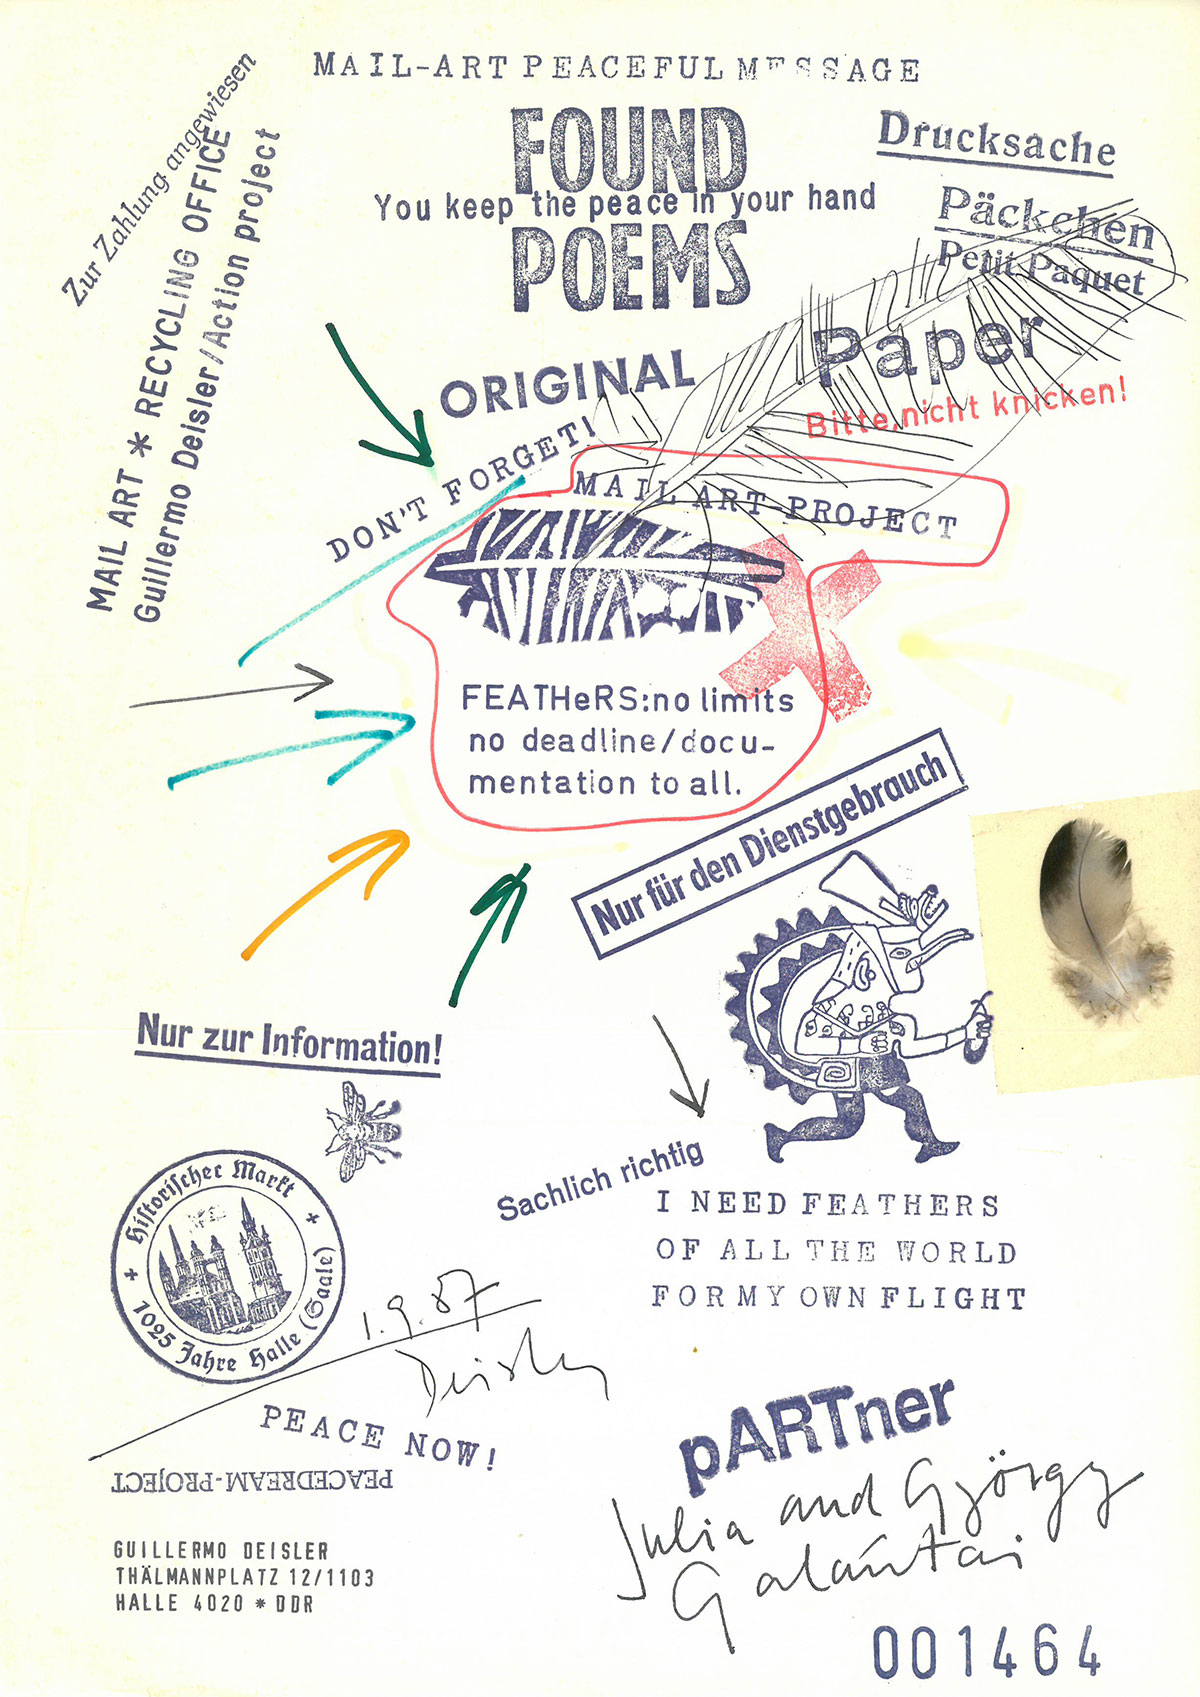 MAIL-ART PEACEFUL MESSAGE
FOUND
You keep the peace in your hand
POEMS
Zur Zahlung angewiesen
MAIL ART * RECYCLING OFFICE
Guillermo Deisler/Action project
Drucksache
Päckchen
Petit Paquet
Paper
Bitte, nicht knicken!
ORIGINAL
DON'T FORGET!
MAIL ART-PROJECT
FEATHeRS:no limits
no deadline/docu-
mentation to all.
Nur für den Dienstgebrauch
Nur zur Information!
Historischer Markt
+ 1025 Jahre Halle (Saale) +
Sachlich richtig
I NEED FEATHERS
OF ALL THE WORLD
FOR MY OWN FLIGHT
1.9.87
Deisler
PEACE NOW!
PEACEDREAM-PROJECT
pARTner
Julia and György
Galántai
GUILLERMO DEISLER
THÄLMANNPLATZ 12/1103
HALLE 4020 * DDR
001464